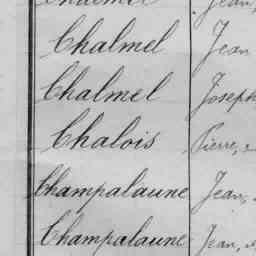 Chalmel Jean,
Chalmel Jean
Chalmel Joseph
Chalois Pierre,
Champalaune Jean,
Champalaune Jean,